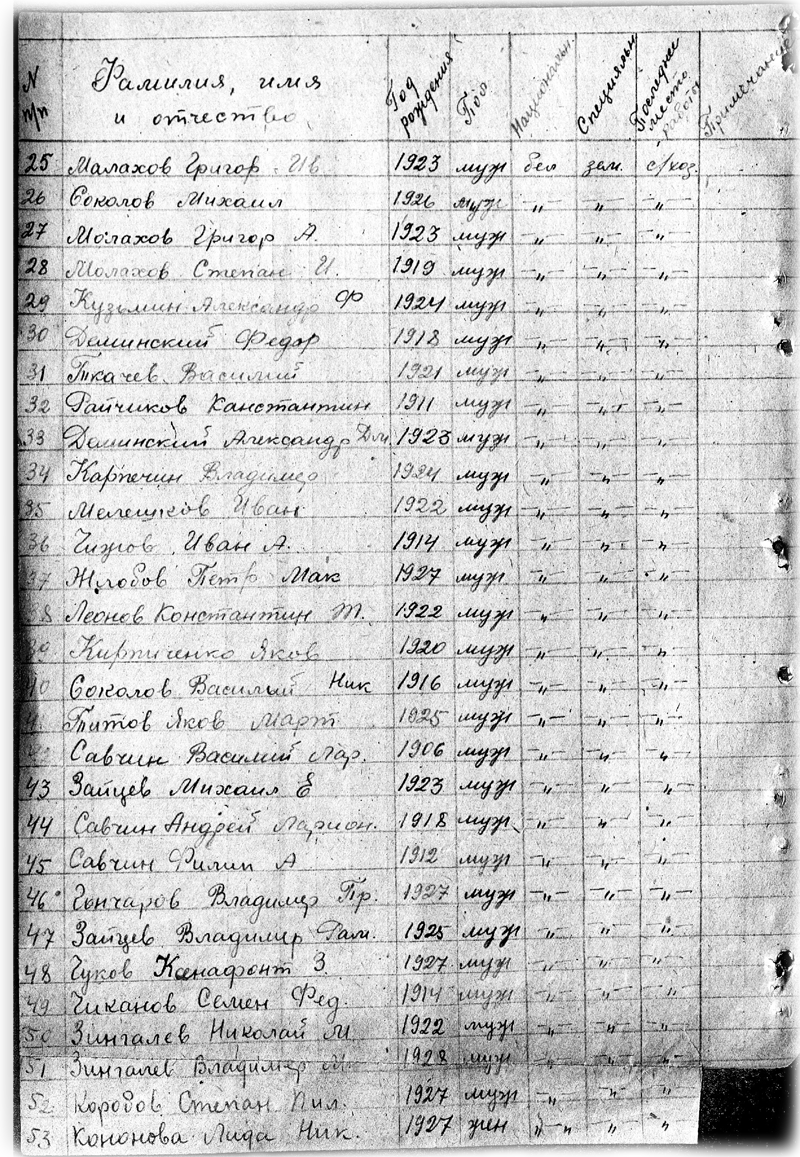 N п/п Фамилия, имя и отчество Год рождения Пол Национальн. Специальн Последнее место работы Примечание
25 Малахов Григор Ив 1923 муж бел зем. с/хоз.
26 Соколов Михаил 1926 муж -"- -"- -"-
27 Молахов Григор А. 1923 муж -"- -"- -"-
28 Молахов Степан И. 1919 муж -"- -"- -"-
29 Кузьмин Александр Ф 1924 муж -"- -"- -"-
30 Деминский Федор 1918 муж -"- -"- -"-
31 Ткачев Василий 1921 муж -"- -"- -"-
32 Райчиков Канстантин 1911 муж -"- -"- -"-
33 Деминский Александр Дм 1923 муж -"- -"- -"-
34 Карпечин Владимер 1924 муж -"- -"- -"-
35 Мелешков Иван 1922 муж -"- -"- -"-
36 Чижов Иван А. 1914 муж -"- -"- -"-
37 Жлобов Петр Мак 1927 муж -"- -"- -"-
38 Леонов Константин Т. 1922 муж -"- -"- -"-
39 Кирпиченко Яков 1920 муж -"- -"- -"-
40 Соколов Василий Ник 1916 муж -"- -"- -"-
41 Титов Яков Март 1925 муж -"- -"- -"-
Савчин Василий Лар. 1906 муж -"- -"- -"-
43 Зайцев Михаил Е 1923 муж -"- -"- -"-
44 Савчин Андрей Ларион. 1918 муж -"- -"- -"-
45 Савчин Филип А 1912 муж -"- -"- -"-
46 Гончаров Владимер Пр. 1927 муж -"- -"- -"-
47 Зайцев Владимер Рам. 1925 муж -"- -"- -"-
48 Чуков Ксенафонт З. 1927 муж -"- -"- -"-
49 Чиканов Семен Фед. 1914 муж -"- -"- -"-
50 Зингалев Николай М 1922 муж -"- -"- -"-
51 Зингалев Владимер М 1928 муж -"- -"- -"-
52 Коробов Степан Пил. 1927 муж -"- -"- -"-
53 Кононова Лида Ник. 1927 жен -"- -"- -"-